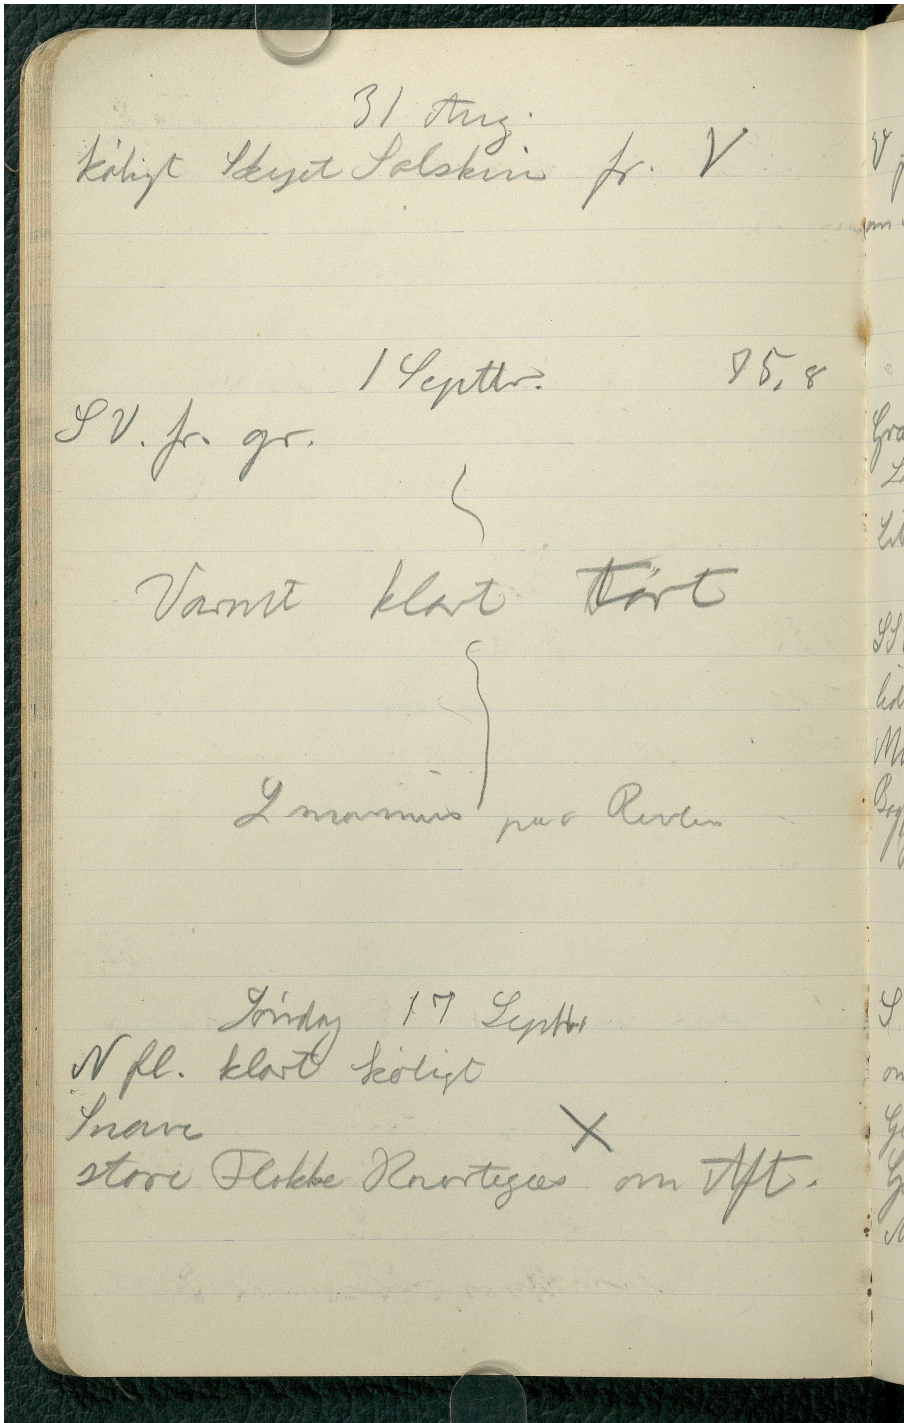 31 Aug.
køligt Skyet Solskin fr. V
1 Septbr. 75,8
SV. fr. gr.
Varmt klart tørt
L marinus paa Revlen
Søndag 17 Septbr
N fl. klart køligt
Snave
store Flokke Knortegæs om Aft.